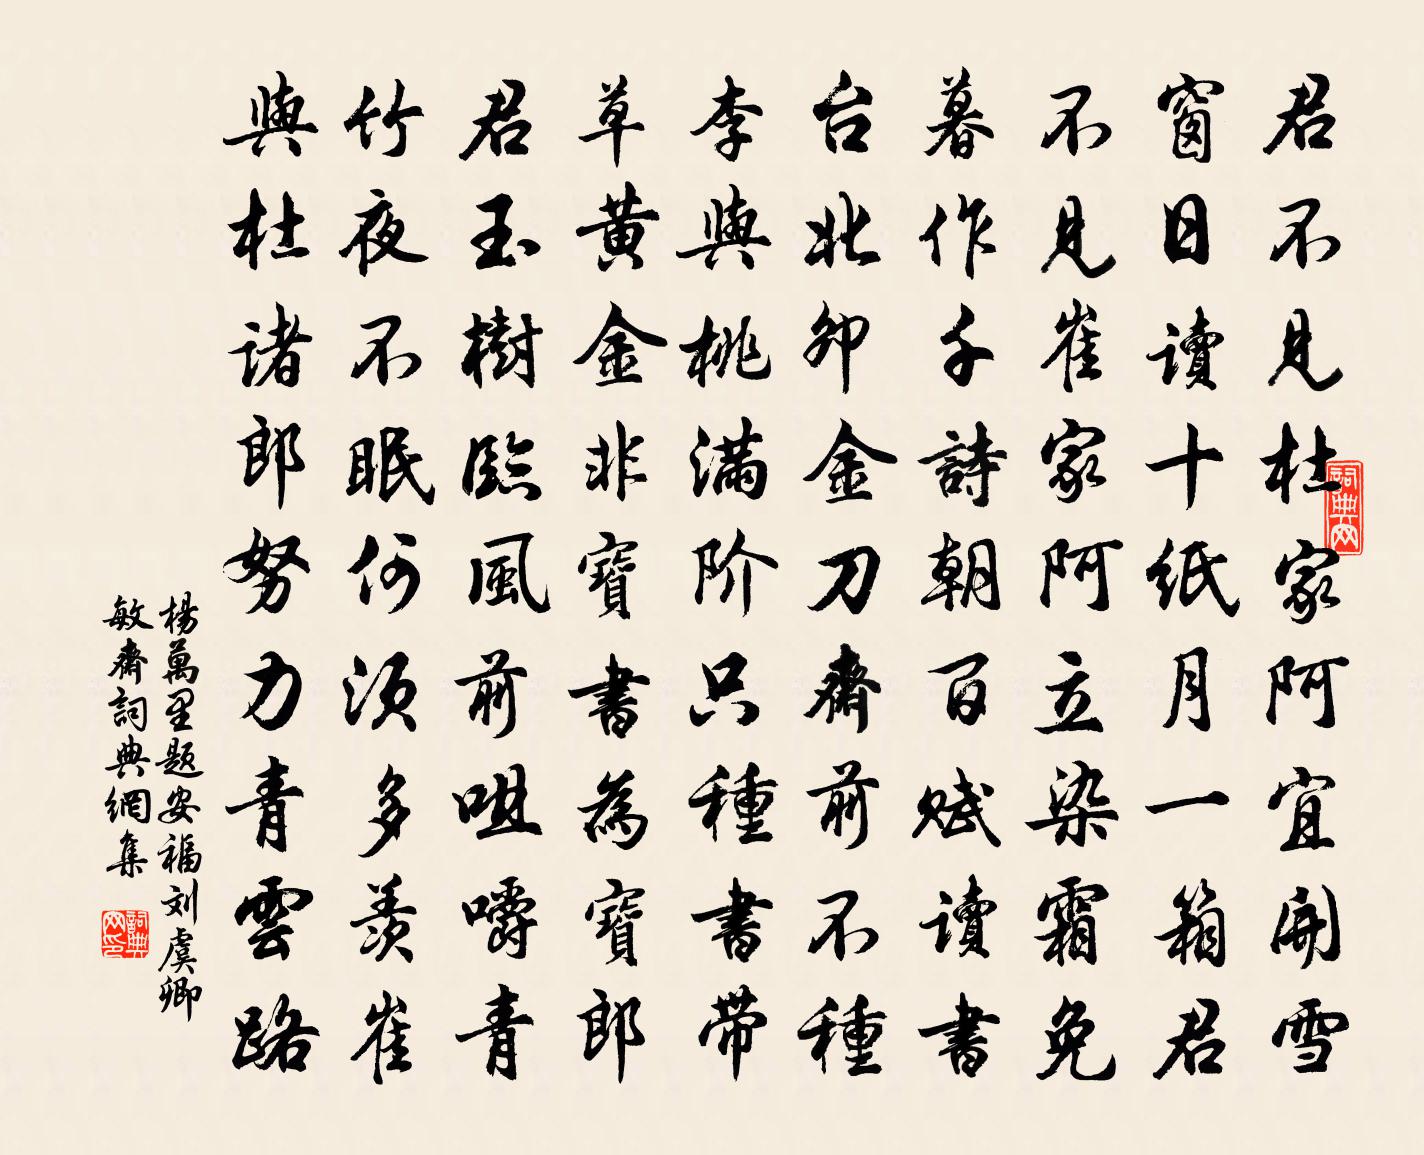 君不見杜家阿宜開雪
窗日讀十紙月一箱君
不見崔家阿立染霜兔
暮作千詩朝百賦讀書
台北卯金刀齋前不種
李與桃滿阶只種書帶
草黃金非寶書為寶郎
君玉樹臨風前咀嚼青
竹夜不眠何須多羨崔
與杜諸郎努力青雲路
楊萬里題安福刘虞卿
敏齋詞典網集
詞典网
詞典网印